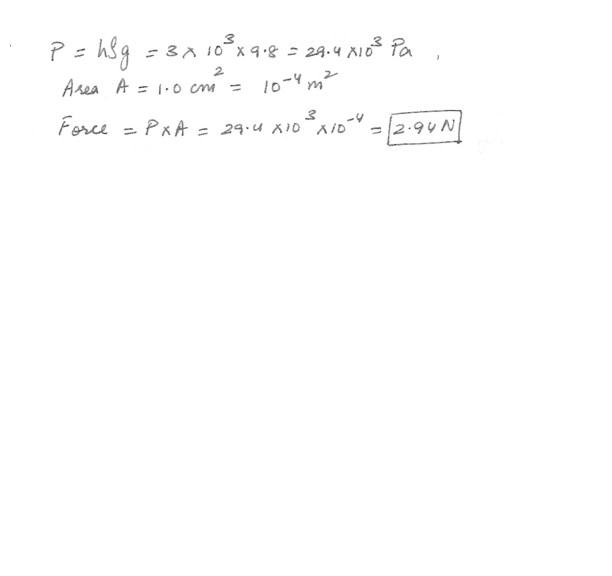 P = hρg = 3 × 10³ × 9.8 = 29.4 × 10³ Pa,
Area A = 1.0 cm² = 10⁻⁴ m²
Force = P × A = 29.4 × 10³ × 10⁻⁴ = 2.94 N